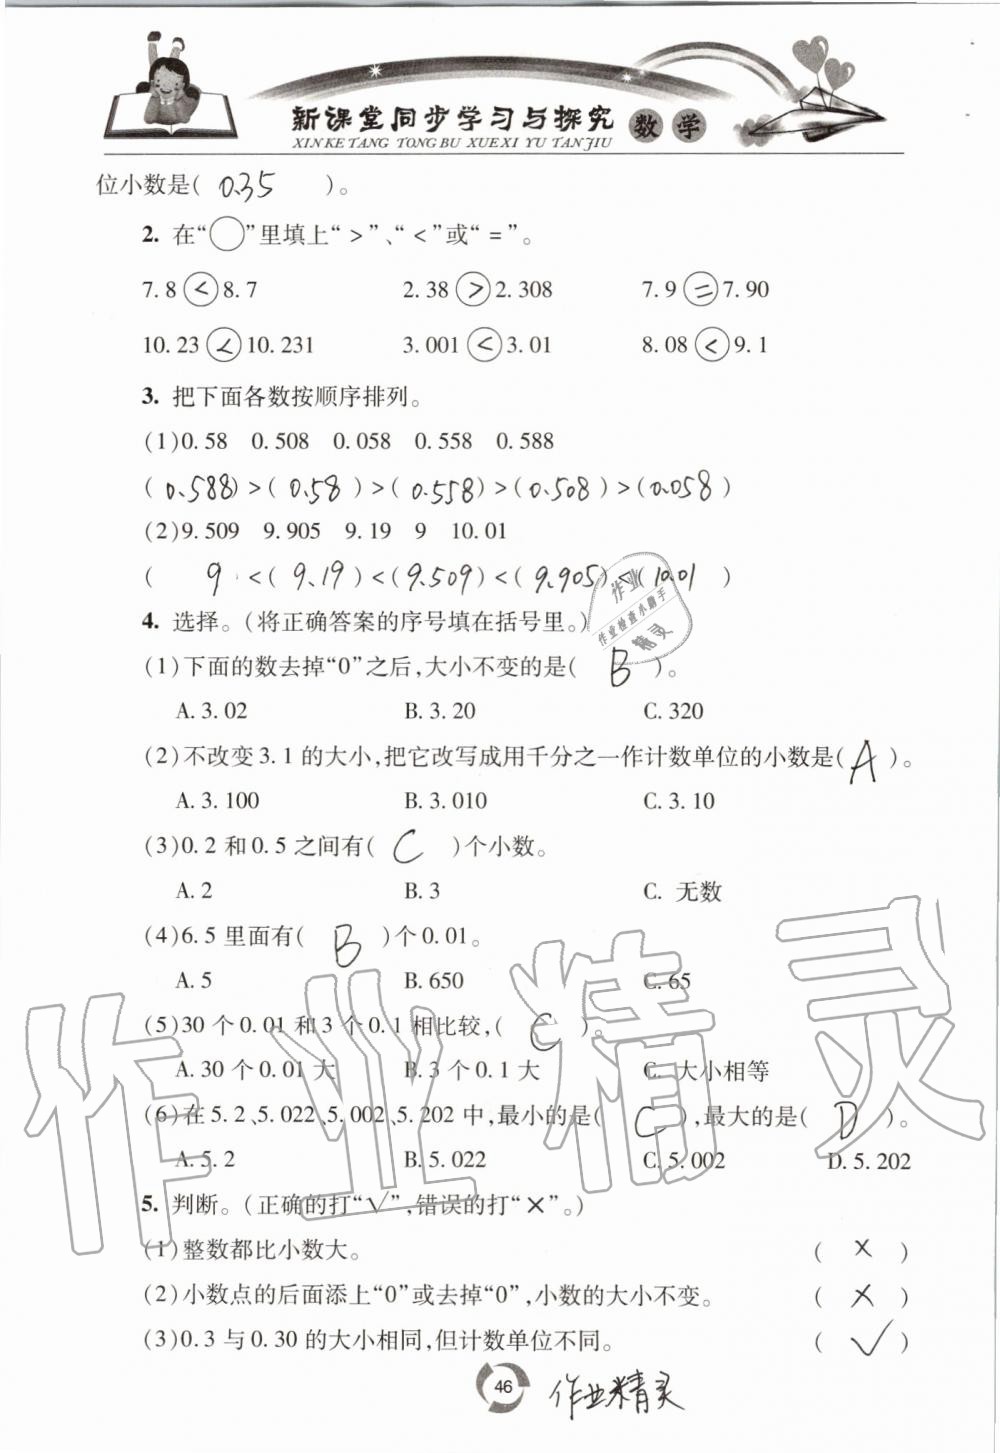 新课堂同步学习与探究 数学
XIN KE TANG TONG BU XUE XI YU TAN JIU
位小数是( 0.35 )。
2. 在“○”里填上“>”、“<”或“=”。
7.8 < 8.7 2.38 > 2.308 7.9 = 7.90
10.23 < 10.231 3.001 < 3.01 8.08 < 9.1
3. 把下面各数按顺序排列。
(1)0.58 0.508 0.058 0.558 0.588
( 0.588 )>( 0.58 )>( 0.558 )>( 0.508 )>( 0.058 )
(2)9.509 9.905 9.19 9 10.01
( 9 <( 9.19 )<( 9.509 )<( 9.905 )<( 10.01 )
4. 选择。(将正确答案的序号填在括号里。)
(1)下面的数去掉“0”之后,大小不变的是( B )。
A. 3.02 B. 3.20 C. 320
(2)不改变3.1的大小,把它改写成用千分之一作计数单位的小数是( A )。
A. 3.100 B. 3.010 C. 3.10
(3)0.2和0.5之间有( C )个小数。
A. 2 B. 3 C. 无数
(4)6.5里面有( B )个0.01。
A. 5 B. 650 C. 65
(5)30个0.01和3个0.1相比较,( C )。
A. 30个0.01大 B. 3个0.1大 C. 大小相等
(6)在5.2、5.022、5.002、5.202中,最小的是( C ),最大的是( D )。
A. 5.2 B. 5.022 C. 5.002 D. 5.202
5. 判断。(正确的打“√”,错误的打“×”。)
(1)整数都比小数大。 ( × )
(2)小数点的后面添上“0”或去掉“0”,小数的大小不变。 ( × )
(3)0.3与0.30的大小相同,但计数单位不同。 ( √ )
46 作业精灵
作业
作业检查小助手
精灵
作业精灵